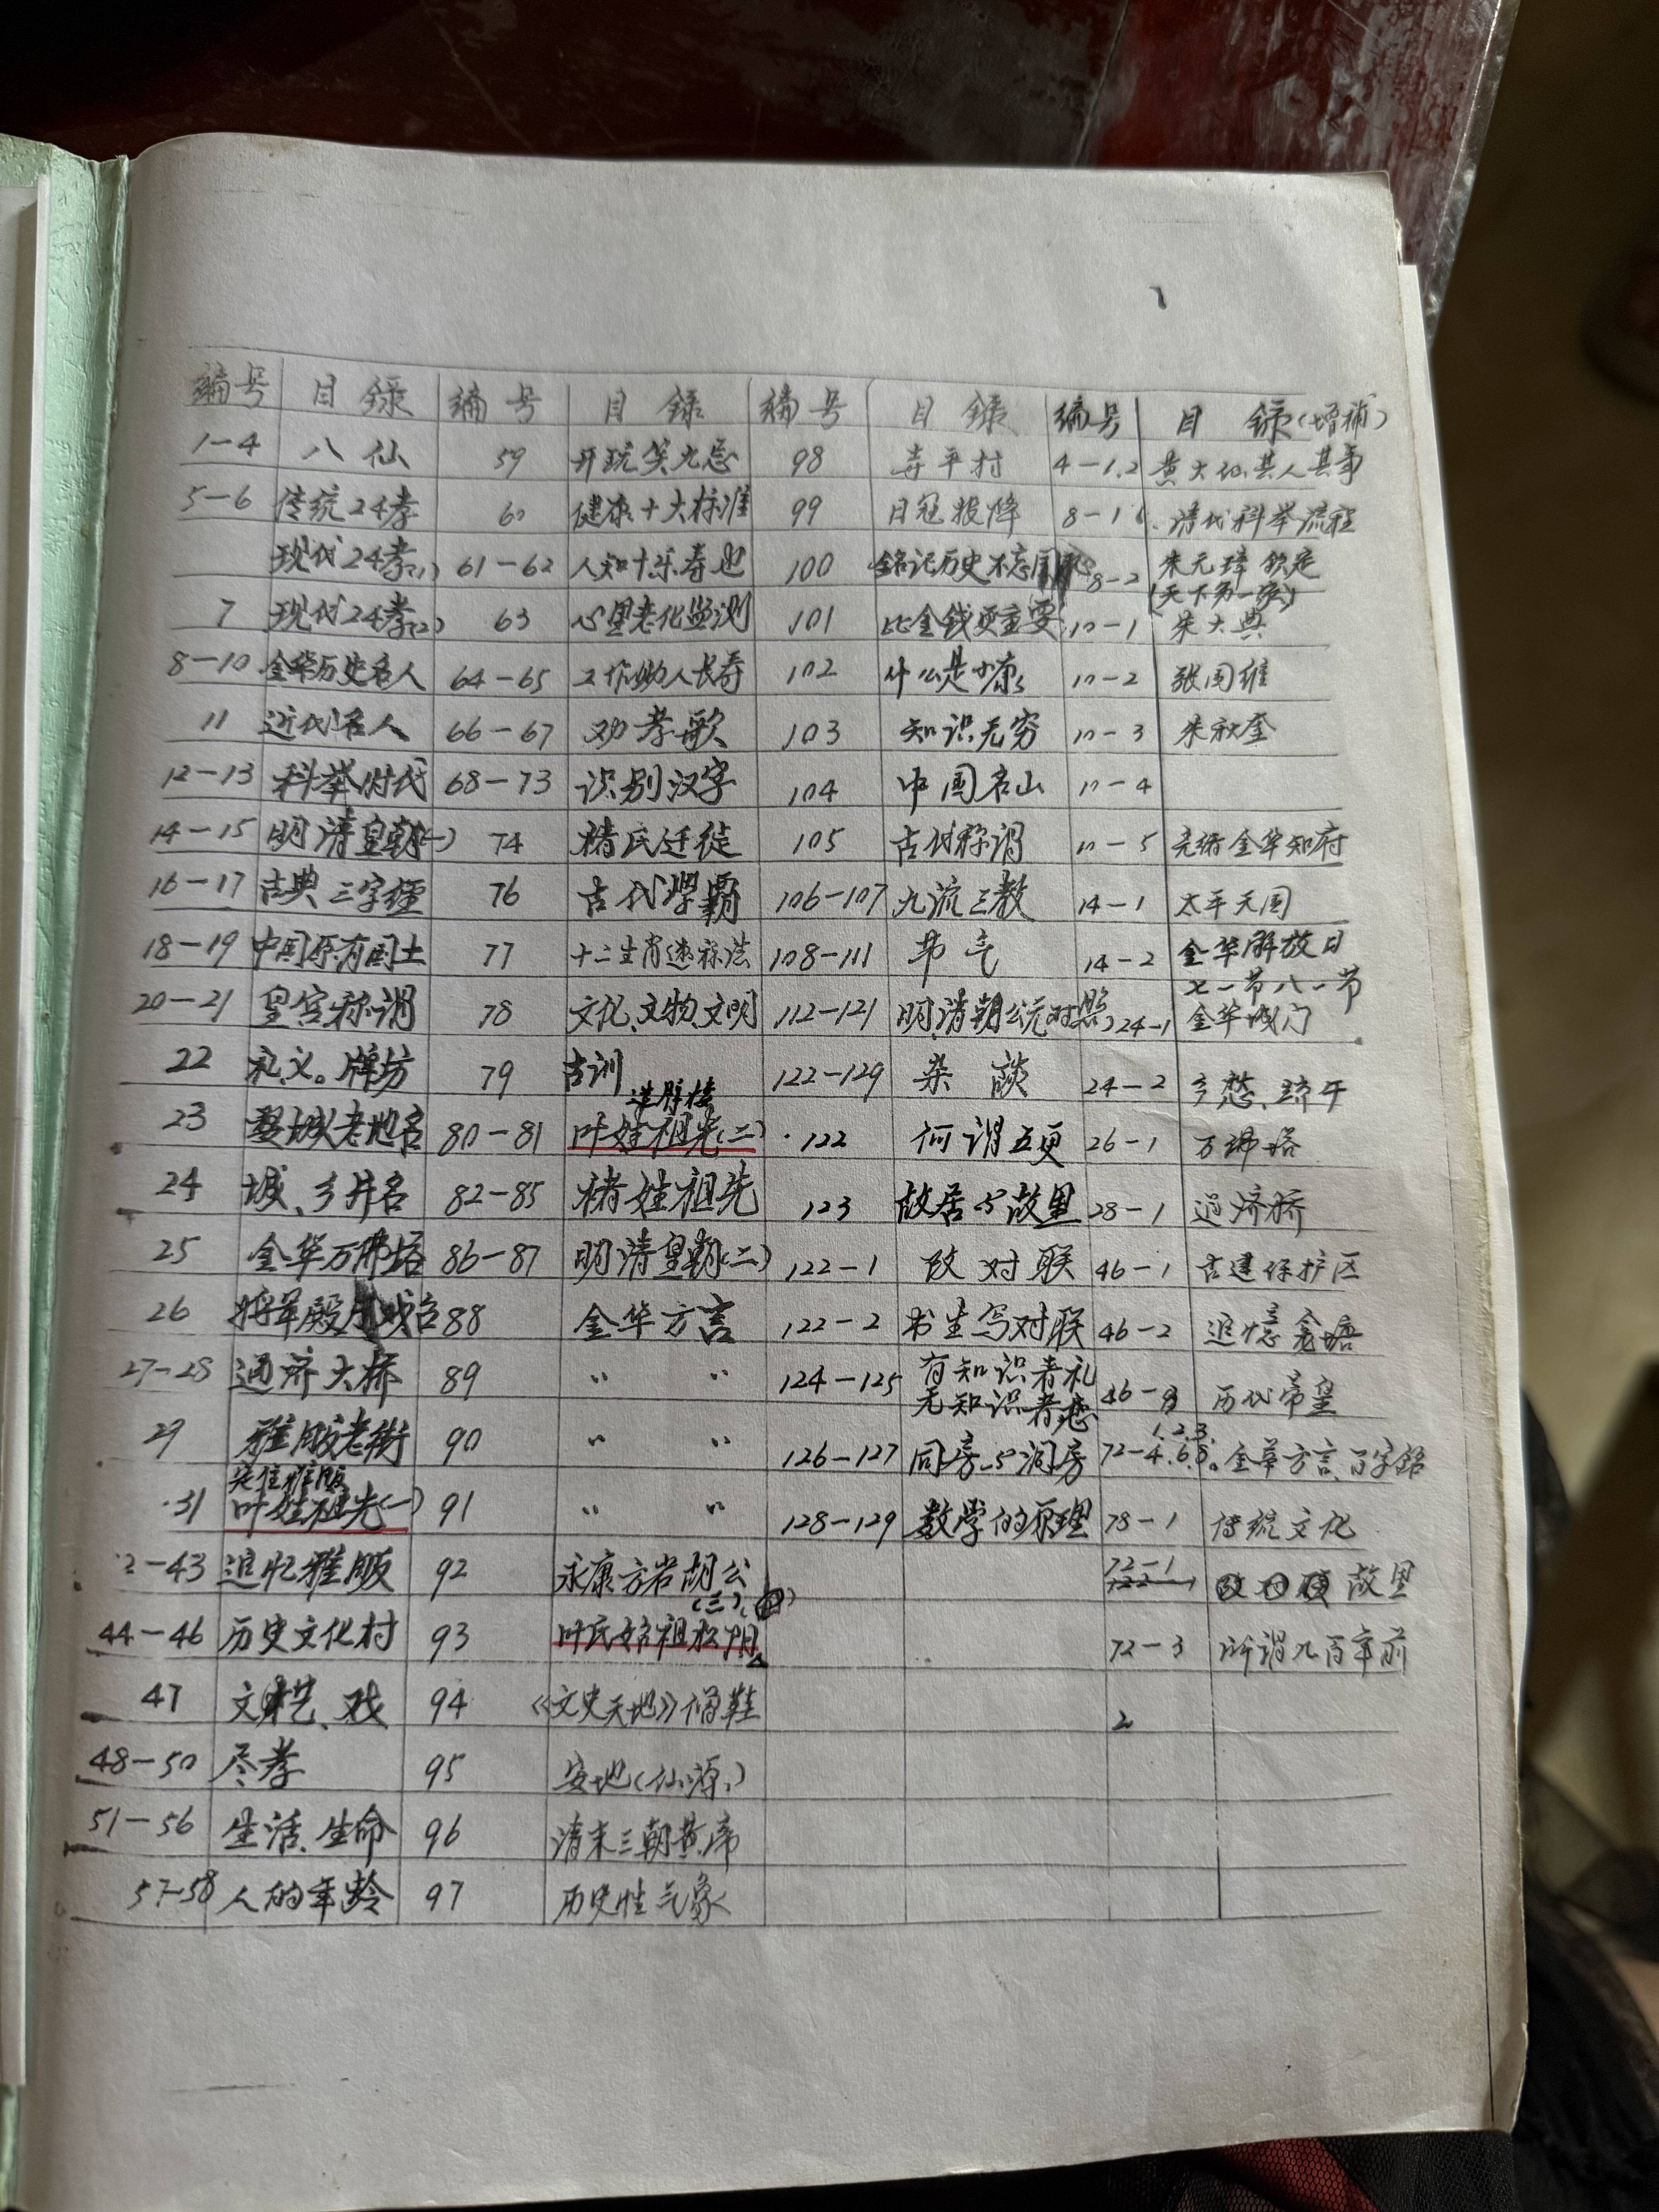 编号 目录 编号 目录 编号 目录 编号 目录(增补)
1-4 八仙 59 开玩笑九忌 98 寺平村 4-1.2 黄大仙其人其事
5-6 传统24孝 60 健康十大标准 99 日冠投降 8-1 清代科举流程
现代24孝(1) 61-62 人知十乐寿也 100 铭记历史不忘国耻 8-2 朱元璋钦定
(天下第一家)
7 现代24孝(2) 63 心里老化监测 101 比金钱更重要 10-1 朱大典
8-10 金华历史名人 64-65 工作助人长寿 102 什么是小康 10-2 张国维
11 近代名人 66-67 劝孝歌 103 知识无穷 10-3 朱秋奎
12-13 科举时代 68-73 识别汉字 104 中国名山 10-4
14-15 明清皇朝(一) 74 褚氏迁徒 105 古代称谓 10-5 光绪金华知府
16-17 古典三字经 76 古代学霸 106-107 九流三教 14-1 太平天国
18-19 中国原有国土 77 十二生肖速称法 108-111 节气 14-2 金华解放日
七一节八一节
20-21 皇宫称谓 78 文化、文物、文明 112-121 明、清朝公元对照 24-1 金华城门
22 礼、义。牌坊 79 古训 122-129 杂谈 24-2 乡愁、
23 婺城老地名 80-81 叶姓祖先(二) ·122 何谓五更 26-1 万佛塔
24 城、乡片名 82-85 褚姓祖先 123 故居与故里 28-1 通济桥
25 金华万佛塔 86-87 明清皇朝(二) 122-1 改对联 46-1 古建保护区
26 将军殿 戏台 88 金华方言 122-2 书生写对联 46-2 追忆
27-28 通济大桥 89 〃 〃 124-125 有知识者礼
无知识者愁 46-3 历代帝皇
29 雅畈老街 90 〃 〃 126-127 同房与洞房 1.2.3.
72-4.6.8。金华方言、百字铭
定住雅畈
31 叶姓祖先(一) 91 〃 〃 128-129 数学的原理 78-1 传统文化
2-43 追忆雅畈 92 永康方岩胡公 72-1 故里
(三)、(四)
44-46 历史文化村 93 叶氏始祖松阴 72-3 所谓九百年前
47 文艺、戏 94 《文史天地》僧鞋 2
48-50 尽孝 95 安地(仙源)
51-56 生活、生命 96 清末三朝黄帝
57-58 人的年龄 97 历史性气象